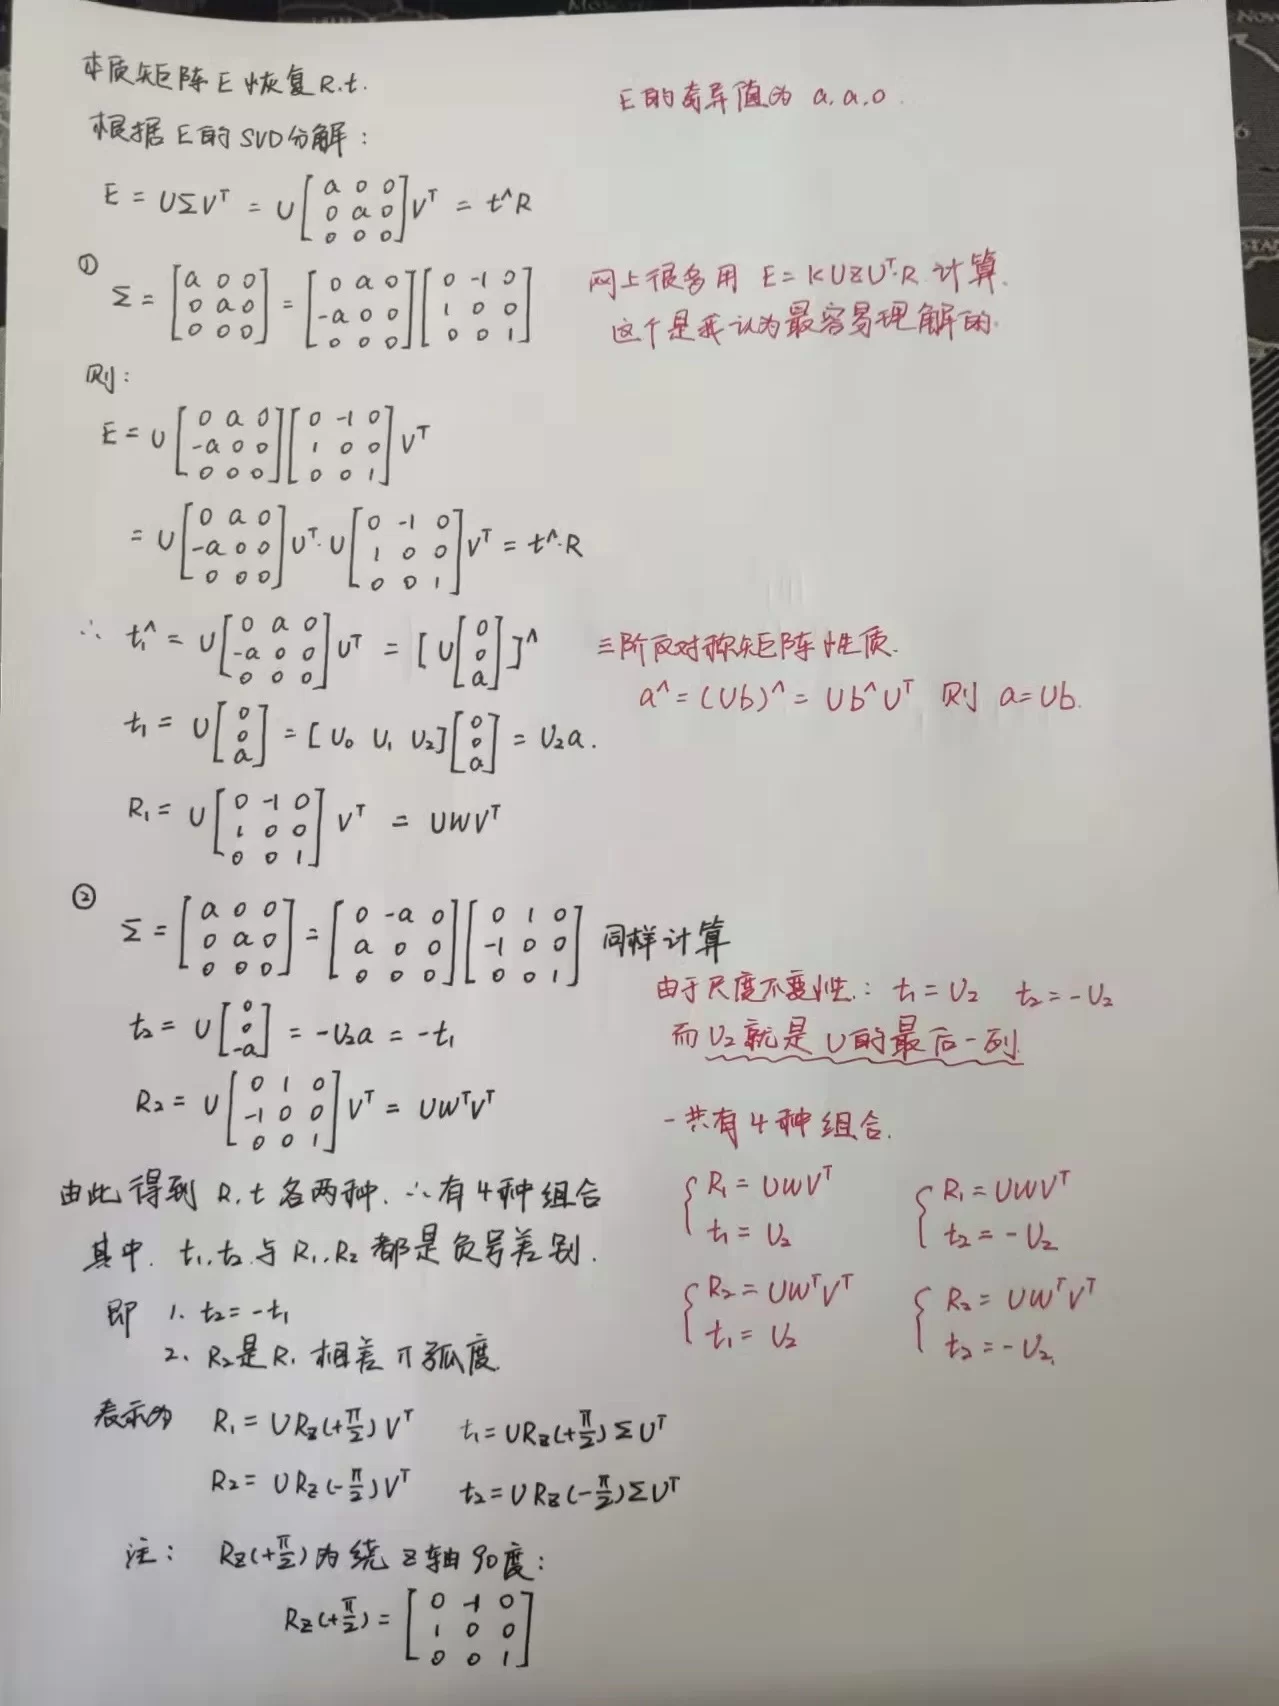 本质矩阵E恢复R.t.
E的奇异值为 a.a.0
根据E的SVD分解:
E = UΣVᵀ = U[a 0 0; 0 a 0; 0 0 0]Vᵀ = t^R
① Σ = [a 0 0; 0 a 0; 0 0 0] = [0 a 0; -a 0 0; 0 0 0][0 -1 0; 1 0 0; 0 0 1]
网上很多用 E = kUZUᵀ·R 计算.
这个是我认为最容易理解的.
则:
E = U[0 a 0; -a 0 0; 0 0 0][0 -1 0; 1 0 0; 0 0 1]Vᵀ
= U[0 a 0; -a 0 0; 0 0 0]Uᵀ·U[0 -1 0; 1 0 0; 0 0 1]Vᵀ = t^·R
∴ t₁^ = U[0 a 0; -a 0 0; 0 0 0]Uᵀ = [U[0; 0; a]]^
三阶反对称矩阵性质.
a^ = (Ub)^ = Ub^Uᵀ 则 a=Ub.
t₁ = U[0; 0; a] = [U₀ U₁ U₂][0; 0; a] = U₂a.
R₁ = U[0 -1 0; 1 0 0; 0 0 1]Vᵀ = UWVᵀ
② Σ = [a 0 0; 0 a 0; 0 0 0] = [0 -a 0; a 0 0; 0 0 0][0 1 0; -1 0 0; 0 0 1] 同样计算
由于尺度不变性: t₁ = U₂ t₂ = -U₂
而U₂就是U的最后一列
t₂ = U[0; 0; -a] = -U₂a = -t₁
R₂ = U[0 1 0; -1 0 0; 0 0 1]Vᵀ = UWᵀVᵀ
一共有4种组合.
{R₁ = UWVᵀ
t₁ = U₂
{R₁ = UWVᵀ
t₂ = -U₂
{R₂ = UWᵀVᵀ
t₁ = U₂
{R₂ = UWᵀVᵀ
t₂ = -U₂
由此得到 R,t各两种.∴有4种组合
其中. t₁.t₂与R₁.R₂都是负号差别.
即 1. t₂=-t₁
2. R₂是R₁相差π弧度
表示为 R₁ = URz(+π/2)Vᵀ t₁ = URz(+π/2)ΣUᵀ
R₂ = URz(-π/2)Vᵀ t₂ = URz(-π/2)ΣUᵀ
注: Rz(+π/2)为绕z轴90度:
Rz(+π/2) = [0 -1 0; 1 0 0; 0 0 1]